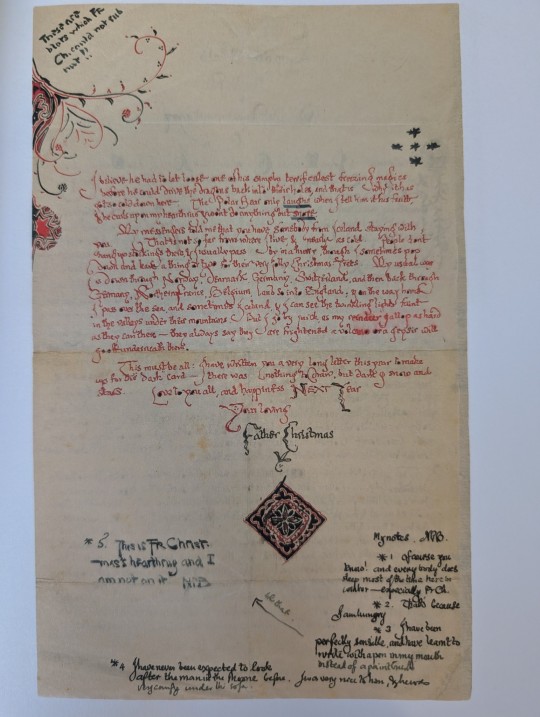 These are
blots what Fr
Ch. could not rub
out !!
I believe he had to let loose one of his simply terrificallest freezing magics
before he could drive the dragons back into their holes, and that is why it is
so cold down here. The Polar Bear only laughs when I tell him it is his fault,
& he curls up on my hearthrug & won't do anything but snore.
My messengers told me that you have somebody from Iceland staying with
you. That is not so far from where I live, & nearly as cold. People don't
hang up stockings there, & I usually pass by in a hurry though I sometimes pop
down and leave a thing or two for their very jolly Christmas Trees. My usual way
is down through Norway, Denmark, Germany, Switzerland, and then back through
Germany, Northern France, Belgium, and so into England; & on the way home
I pass over the sea, and sometimes Iceland & I can see the twinkling lights faint
in the valleys under their mountains. But I hurry quick as my reindeer gallop as hard
as they can there — they always say they are frightened a volcano or a geyser will
go off underneath them.
This must be all: I have written you a very long letter this year to make
up for the Dark Card — there was nothing to draw, but dark & snow and
stars.
Love to you all, and happiness NEXT Year
Your loving
Father Christmas
My notes. NPB
*1 Of course you
know! and every body does
sleep most of the time here in
winter — especially Fr Ch.
*2. That's because
I am hungry
*3 I have been
perfectly sensible, and have learnt to
write with a pen in my mouth
instead of a paintbrush
*5. This is Fr Christ-
mas's hearthrug and I
am not on it NPB
*4 I have never been expected to look
after the man in the Moone before. I was very nice to him, &